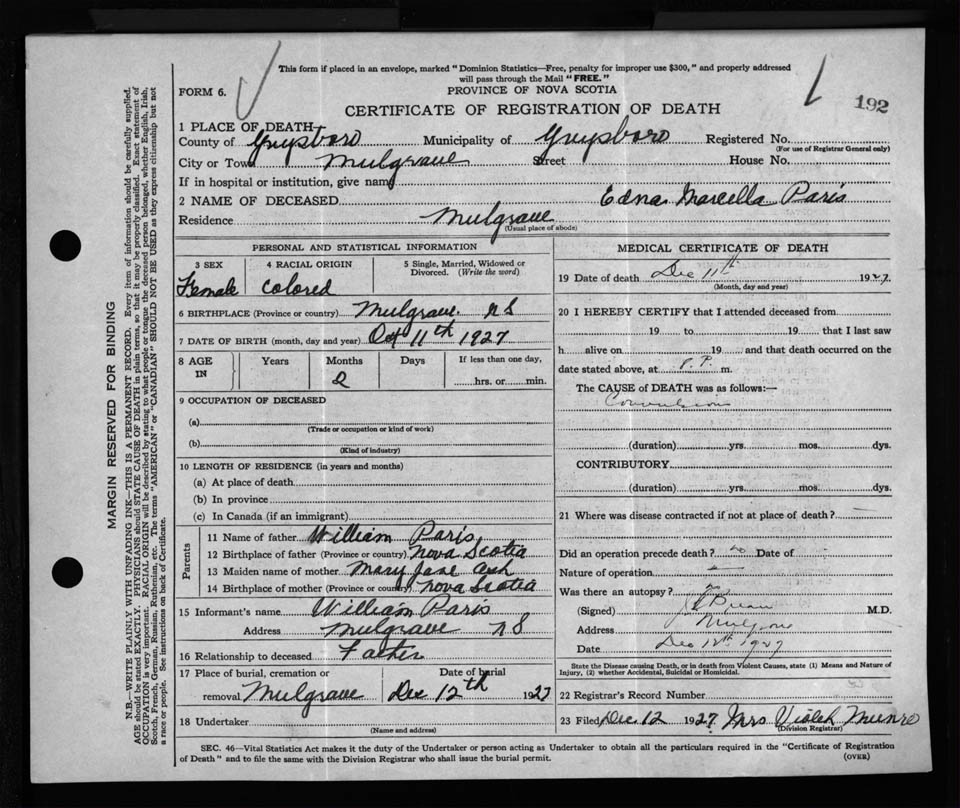 This form if placed in an envelope, marked "Dominion Statistics—Free, penalty for improper use $300," and properly addressed
will pass through the Mail "FREE."
FORM 6.
PROVINCE OF NOVA SCOTIA
192
CERTIFICATE OF REGISTRATION OF DEATH
1 PLACE OF DEATH—
County of Guysboro Municipality of Guysboro Registered No.
(For use of Registrar General only)
City or Town Mulgrave Street House No.
If in hospital or institution, give name
2 NAME OF DECEASED Edna Marcella Paris
Residence Mulgrave
(Usual place of abode)
PERSONAL AND STATISTICAL INFORMATION
3 SEX 4 RACIAL ORIGIN 5 Single, Married, Widowed or Divorced. (Write the word)
Female Colored
6 BIRTHPLACE (Province or country) Mulgrave. N S
7 DATE OF BIRTH (month, day and year) Oct 11th 1927
8 AGE IN Years Months Days If less than one day,
2 hrs. or min.
9 OCCUPATION OF DECEASED
(a)
(Trade or occupation or kind of work)
(b)
(Kind of industry)
10 LENGTH OF RESIDENCE (in years and months)
(a) At place of death
(b) In province
(c) In Canada (if an immigrant)
Parents
11 Name of father William Paris
12 Birthplace of father (Province or country) Nova Scotia
13 Maiden name of mother Mary Jane Ash
14 Birthplace of mother (Province or country) Nova Scotia
15 Informant's name William Paris
Address Mulgrave N S
16 Relationship to deceased Father
17 Place of burial, cremation or Date of burial
removal Mulgrave Dec 12th 1927
18 Undertaker
(Name and address)
MEDICAL CERTIFICATE OF DEATH
19 Date of death Dec 11th 1927.
(Month, day and year)
20 I HEREBY CERTIFY that I attended deceased from
19 to 19 that I last saw
h alive on 19 and that death occurred on the
date stated above, at m.
The CAUSE of DEATH was as follows:—
Convulsion
(duration) yrs. mos. dys.
CONTRIBUTORY
(duration) yrs. mos. dys.
21 Where was disease contracted if not at place of death?
Did an operation precede death? no Date of
Nature of operation
Was there an autopsy?
(Signed) M.D.
Address Mulgrave
Date Dec 12th 1927
State the Disease causing Death, or in death from Violent Causes, state (1) Means and Nature of
Injury, (2) whether Accidental, Suicidal or Homicidal.
22 Registrar's Record Number
23 Filed Dec 12 1927. Mrs Violet Munro
(Division Registrar)
SEC. 46—Vital Statistics Act makes it the duty of the Undertaker or person acting as Undertaker to obtain all the particulars required in the "Certificate of Registration
of Death" and to file the same with the Division Registrar who shall issue the burial permit.
(OVER)
MARGIN RESERVED FOR BINDING
N.B.—WRITE PLAINLY WITH UNFADING INK—THIS IS A PERMANENT RECORD. Every item of information should be carefully supplied.
AGE should be stated EXACTLY. PHYSICIANS should STATE CAUSE OF DEATH in plain terms, so that it may be properly classified. Exact statement of
OCCUPATION is very important. RACIAL ORIGIN will be described by stating to what people or tongue the deceased person belonged, whether English, Irish,
Scotch, French, German, Russian, Ruthenian, etc. The terms "AMERICAN" or "CANADIAN" SHOULD NOT BE USED as they express citizenship but not
a race or people. See instructions on back of Certificate.